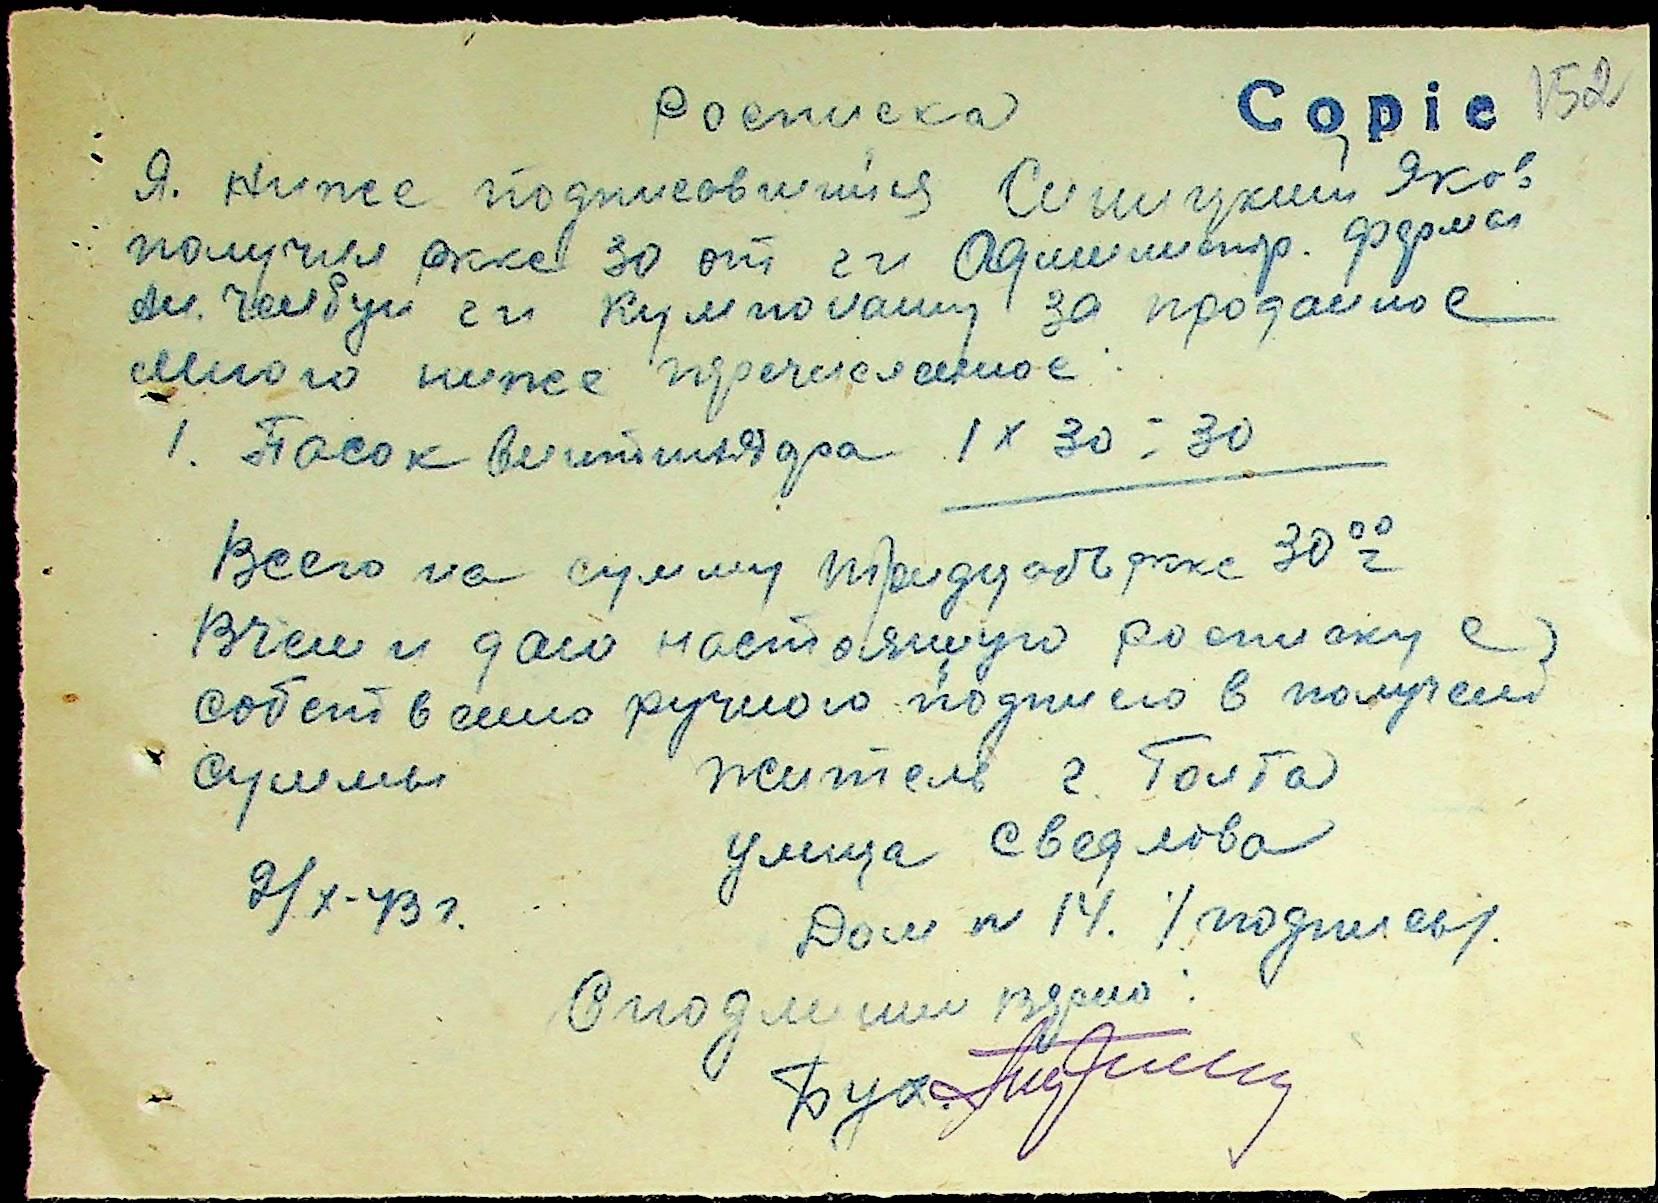 Росписка Copie 152
Я. ниже подписавшийся Синицкий Яков
получил ркке 30 от г-н Администр. ферма
г-н за проданное
много ниже перечисленное:
1. Пасок 1 х 30 = 30
Всего на сумму тридцать ркке 30 00
Вчем и даю настоящую росписку с
собственно ручного подписю в получен
суммы житель г. Голта
улица Сведлова
2/X-43 г. Дом № 14. /подпись/.
С подлиним верно:
Бух.